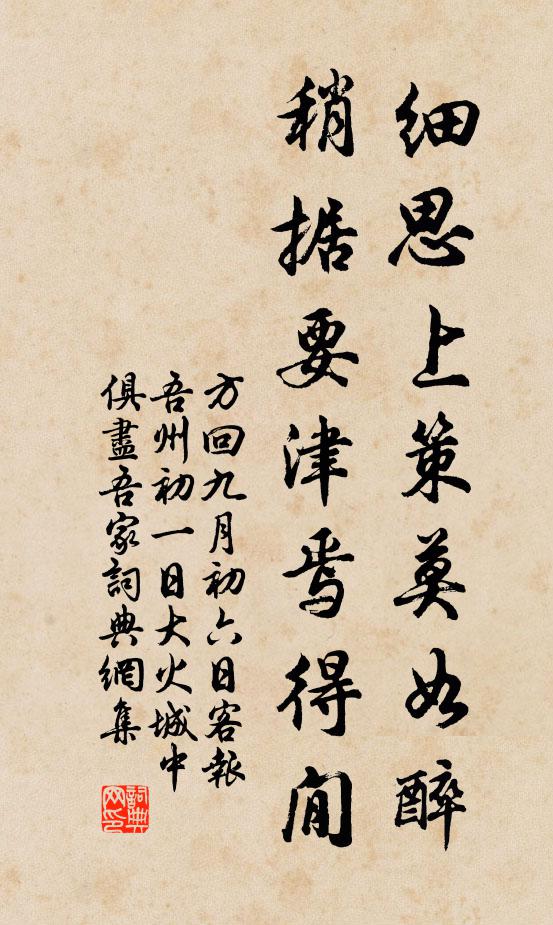 细思上策莫如醉
稍据要津焉得闲
方回九月初六日客報
吾州初一日大火城中
俱盡吾家詞典網集
詞典网印